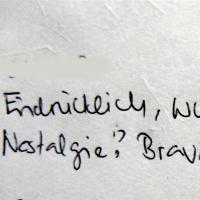 Eindrücklich, wu
Nostalgie? Brav